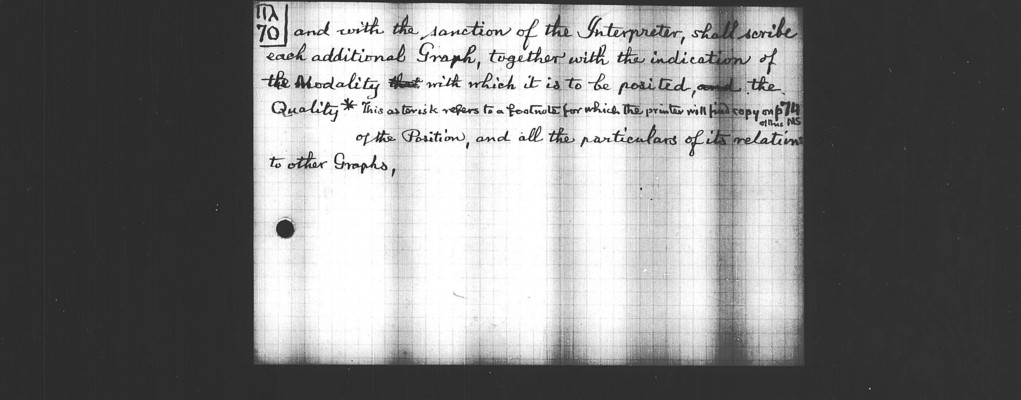 Πλ
70
and with the sanction of the Interpreter, shall scribe
each additional Graph, together with the indication of
the Modality that with which it is to be posited, and the
Quality* This asterisk refers to a footnote for which the printer will find copy on p 74
of this MS
of the Position, and all the particulars of its relations
to other Graphs,